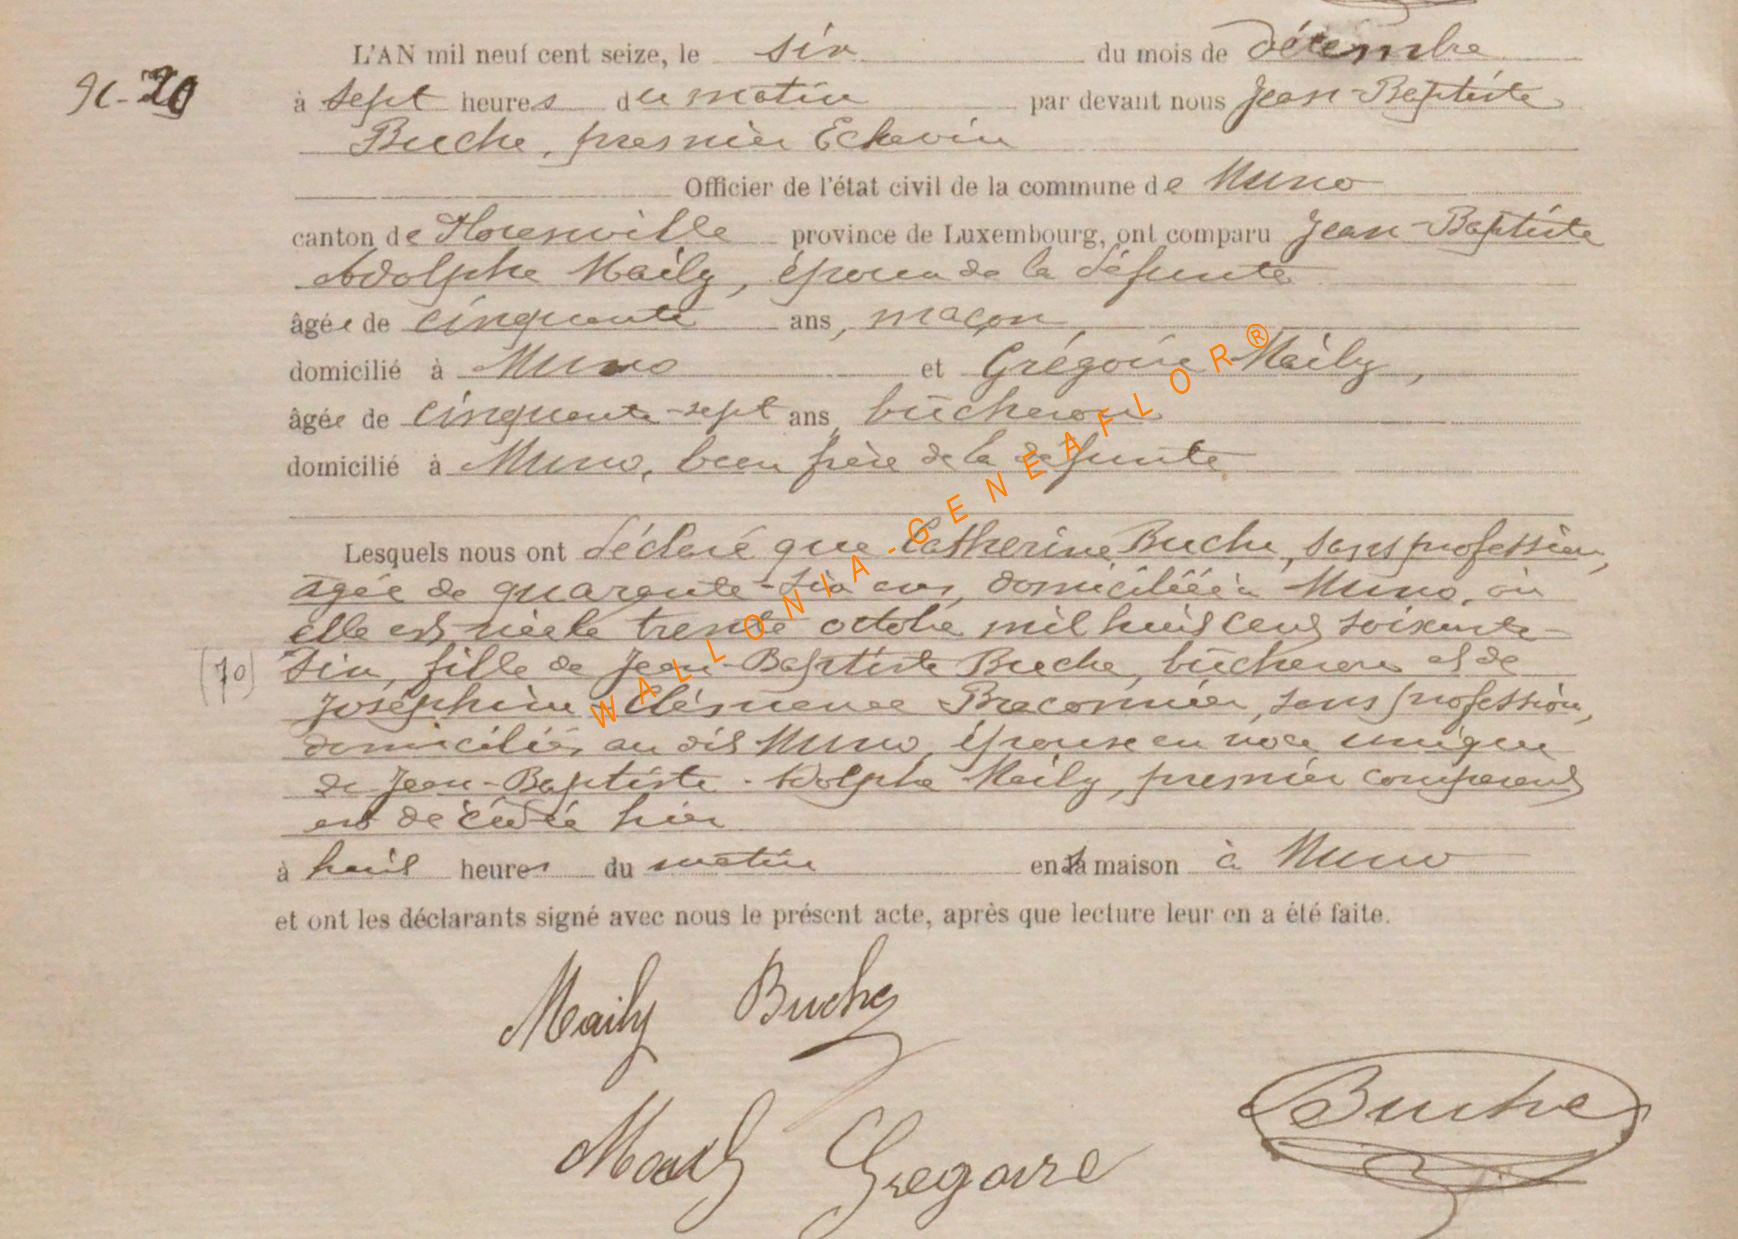 L'AN mil neuf cent seize, le six du mois de décembre
N-20
à sept heures du matin par devant nous Jean-Baptiste
Buche, premier Echevin
Officier de l'état civil de la commune de Muno
canton de Florenville province de Luxembourg, ont comparu Jean-Baptiste
Adolphe Maily, époux de la défunte
âgée de cinquante ans, maçon
domicilié à Muno et Grégoire Maily,
âgée de cinquante-sept ans, bûcheron
domicilié à Muno, beau frère de la défunte
Lesquels nous ont déclaré que Catherine Buche, sans profession,
agée de quarante-six ans, domiciliée à Muno, où
elle est née le trente octobre mil huit cent soixante-
(70) six, fille de Jean-Baptiste Buche, bûcheron et de
Joséphine Clémence Braconnier, sans profession,
domiciliés au dit Muno, épouse en noce unique
de Jean-Baptiste-Adolphe Maily, premier comparant
est décédée hier
à huit heures du matin en sa maison à Muno
et ont les déclarants signé avec nous le présent acte, après que lecture leur en a été faite.
Maily Buche
Buche
Maily Gregoire
WALLONIA-GENEAFLOR®